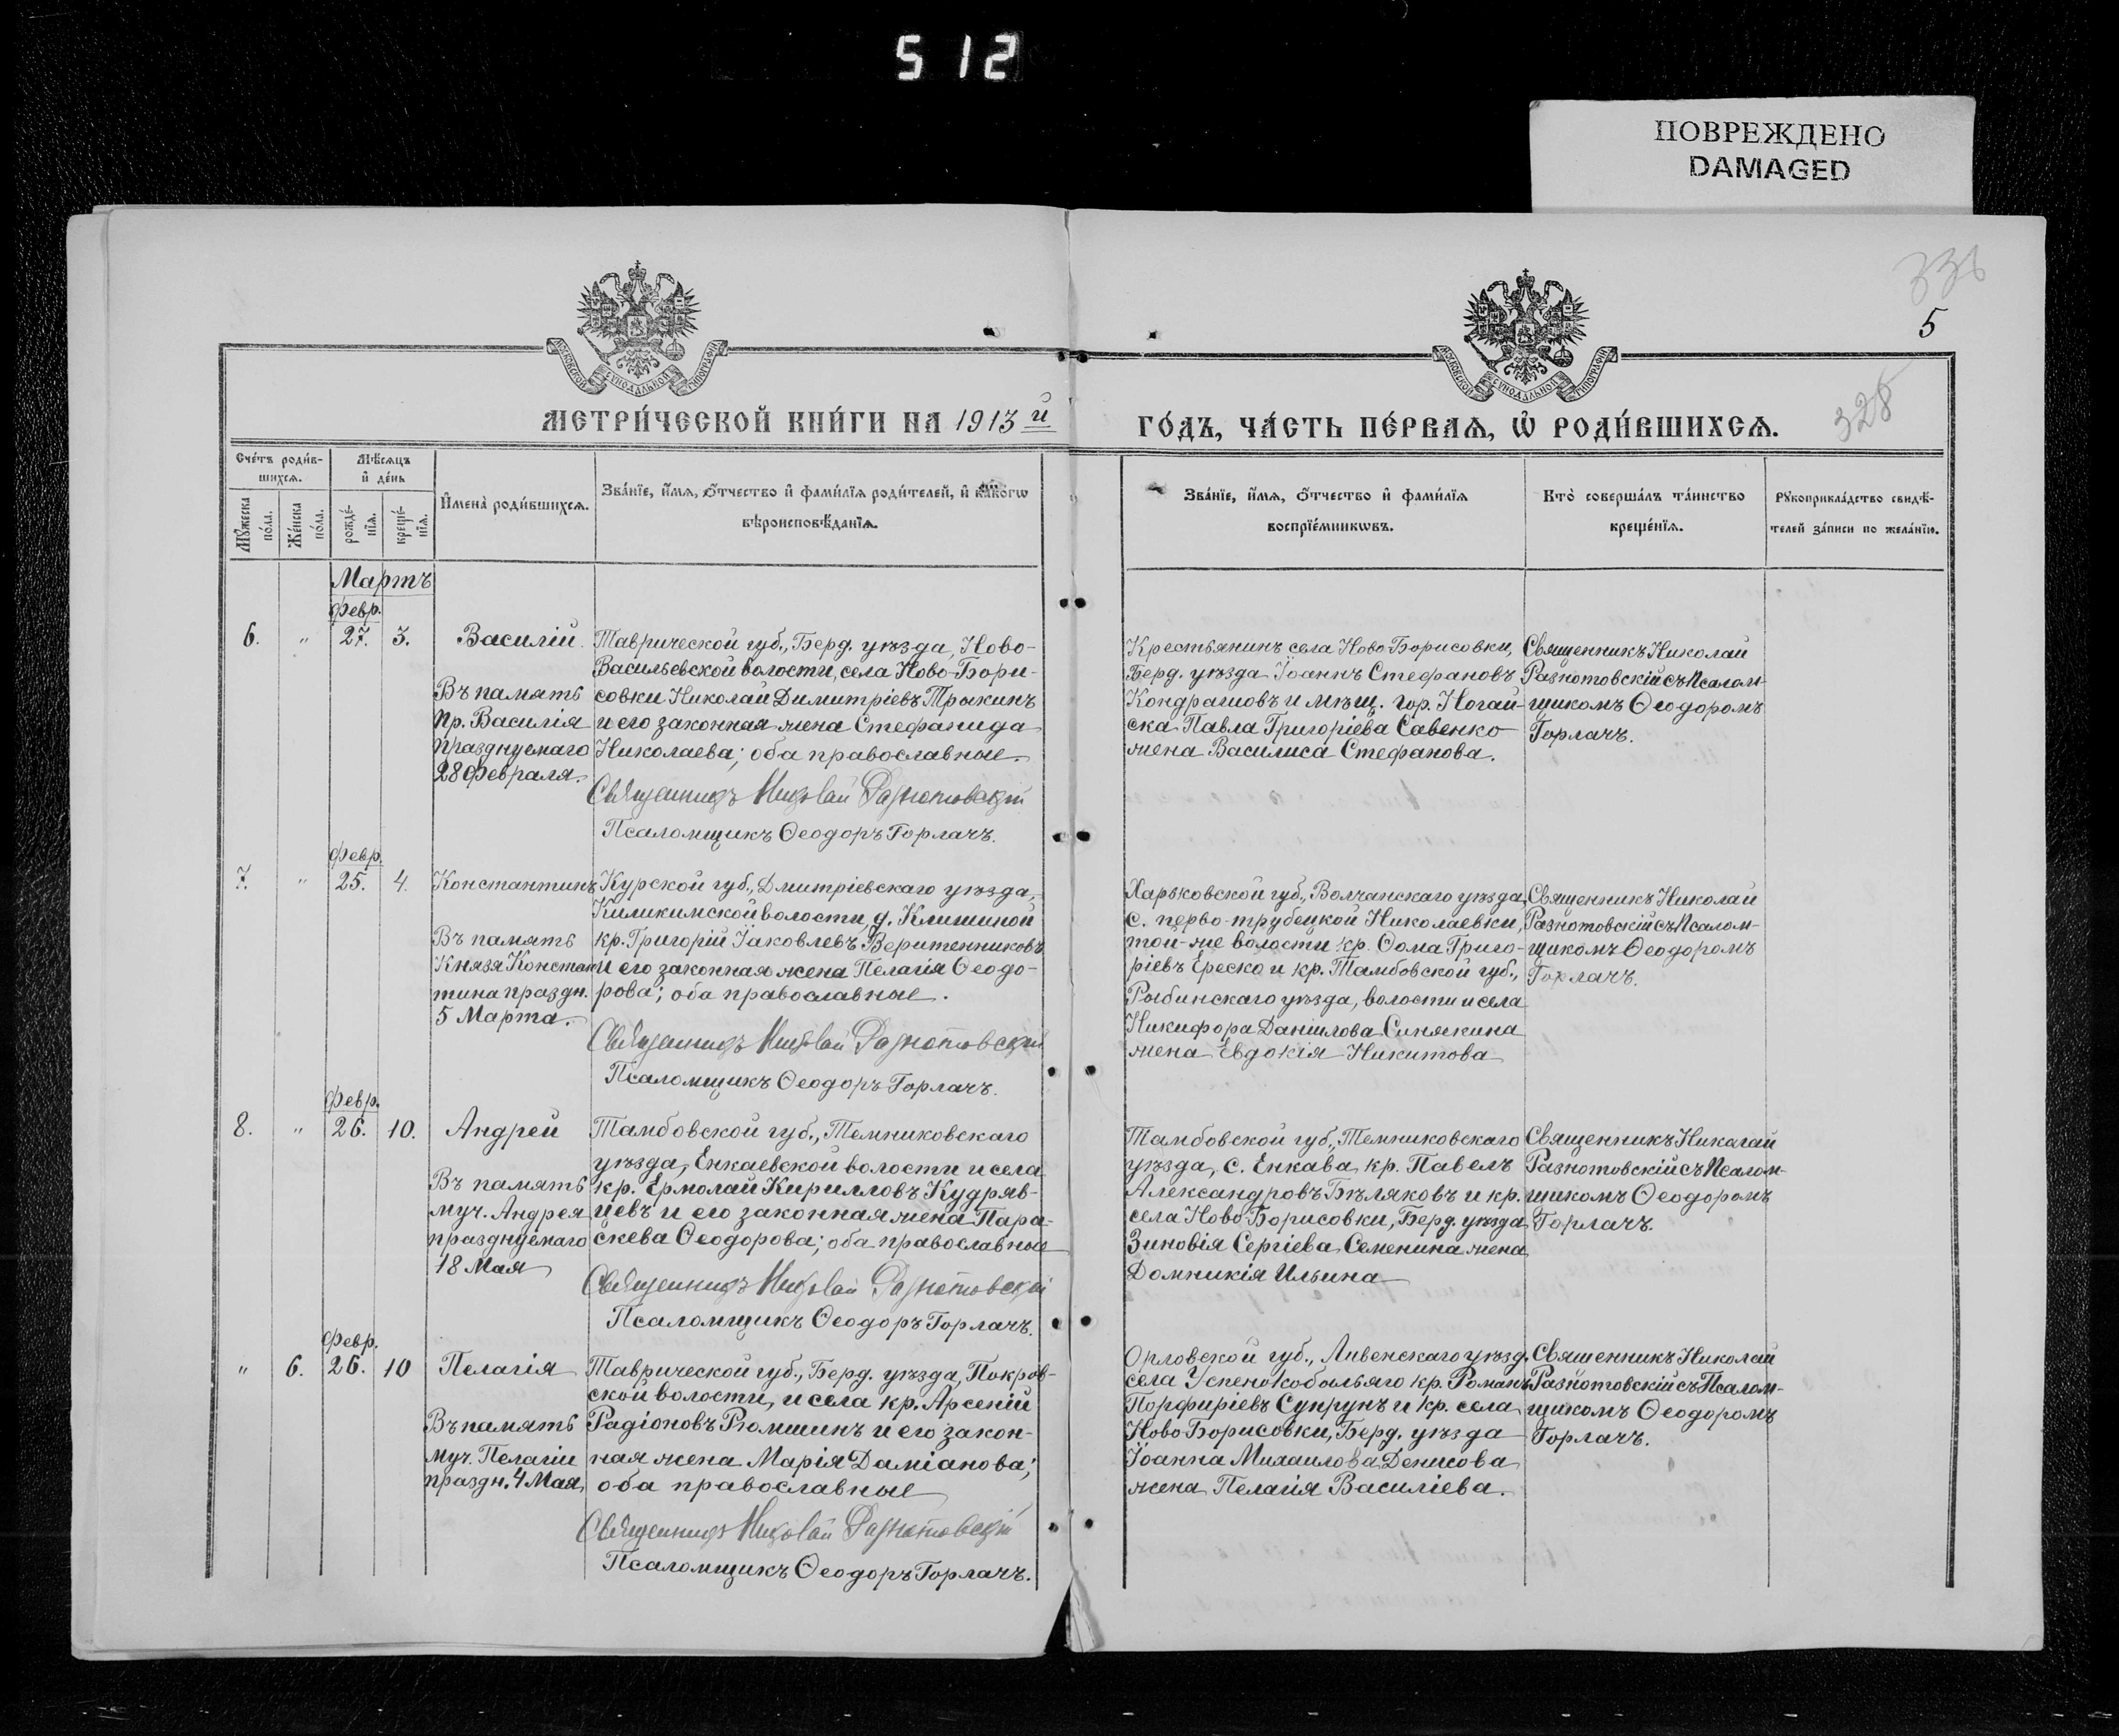 512
ПОВРЕЖДЕНО
DAMAGED
336
5
328
МОСКОВСКОЙ СѴНОДАЛЬНОЙ ТИПОГРАФІИ
МОСКОВСКОЙ СѴНОДАЛЬНОЙ ТИПОГРАФІИ
МЕТРИ́ЧЕСКОЙ КНИ́ГИ НА 1913й
ГО́ДЪ, ЧА́СТЬ ПЕ́РВАѦ, Ѡ҆ РОДИ́ВШИХСѦ.
Сче́тъ роди́в-
шихсѧ.
Мꙋ́жеска по́ла.
Же́нска по́ла.
Мѣ́сѧцъ
и҆ де́нь
рожде́-
нїѧ.
креще́-
нїѧ.
И҆мена̀ роди́вшихсѧ.
Зва́нїе, и҆́мѧ, ѻ҆́тчество и҆ фами́лїѧ роди́телей, и҆ како́гѡ
вѣроисповѣ́данїѧ.
Зва́нїе, и҆́мѧ, ѻ҆́тчество и҆ фами́лїѧ
воспрїе́мникѡвъ.
Кто̀ соверша́лъ та́инство
креще́нїѧ.
Рꙋкоприкла́дство свидѣ́-
телей за́писи по жела́нїю.
Мартъ
Февр.
6. " 27. 3. Василій
Въ память
пр. Василія
празднуемаго
28 Февраля.
Таврической губ., Берд. уѣзда, Ново-
Васильевской волости, села Ново-Бори-
совки Николай Димитріевъ Трыкинъ
и его законная жена Стефанида
Николаева; оба православные.
Священникъ Николай Разнотовскій
Псаломщикъ Ѳеодоръ Горлачъ.
Крестьянинъ села Ново Борисовки,
Берд. уѣзда Іоаннъ Стефановъ
Кондрашовъ и мѣщ. гор. Ногай-
ска Павла Григоріева Савенко
жена Василиса Стефанова.
Священникъ Николай
Разнотовскій съ Псалом-
щикомъ Ѳеодоромъ
Горлачъ.
Февр.
7. " 25. 4. Константинъ
Въ память
Князя Констан-
тина праздн.
5 Марта.
Курской губ., Дмитріевскаго уѣзда,
Киликимской волости, д. Клишиной
кр. Григорій Іаковлевъ Веритенниковъ
и его законная жена Пелагія Ѳеодо-
рова; оба православные.
Священникъ Николай Разнотовскій
Псаломщикъ Ѳеодоръ Горлачъ.
Харьковской губ., Волчанскаго уѣзда,
с. перво-трубецкой Николаевки,
той-же волости кр. Ѳома Григо-
ріевъ Ереско и кр. Тамбовской губ.,
Рыбинскаго уѣзда, волости и села
Никифора Даніилова Синякина
жена Евдокія Никитова
Священникъ Николай
Разнотовскій съ Псалом-
щикомъ Ѳеодоромъ
Горлачъ.
Февр.
8. " 26. 10. Андрей
Въ память
муч. Андрея
празднуемаго
18 Мая
Тамбовской губ., Темниковскаго
уѣзда, Енкаевской волости и села
кр. Ермолай Кирилловъ Кудряв-
цевъ и его законная жена Пара-
скева Ѳеодорова; оба православные
Священникъ Николай Разнотовскій
Псаломщикъ Ѳеодоръ Горлачъ.
Тамбовской губ., Темниковскаго
уѣзда, с. Енкава кр. Павелъ
Александровъ Бѣляковъ и кр.
села Ново Борисовки, Берд. уѣзда
Зиновія Сергіева Семенина жена
Домникія Ильина
Священникъ Никагай
Разнотовскій съ Псалом-
щикомъ Ѳеодоромъ
Горлачъ.
Февр.
" 6. 26. 10 Пелагія
Въ память
муч. Пелагіи
праздн. 4 Мая
Таврической губ., Берд. уѣзда, Покров-
ской волости, и села кр. Арсеній
Радіоновъ Ромшинъ и его закон-
ная жена Марія Даміанова;
оба православные
Священникъ Николай Разнотовскій
Псаломщикъ Ѳеодоръ Горлачъ.
Орловской губ., Ливенскаго уѣзд.
села Успено Кобыльяго кр. Романъ
Порфиріевъ Супрунъ и кр. села
Ново Борисовки, Берд. уѣзда
Іоанна Михаилова Денисова
жена Пелагія Василіева.
Священникъ Николай
Разнотовскій съ Псалом-
щикомъ Ѳеодоромъ
Горлачъ.